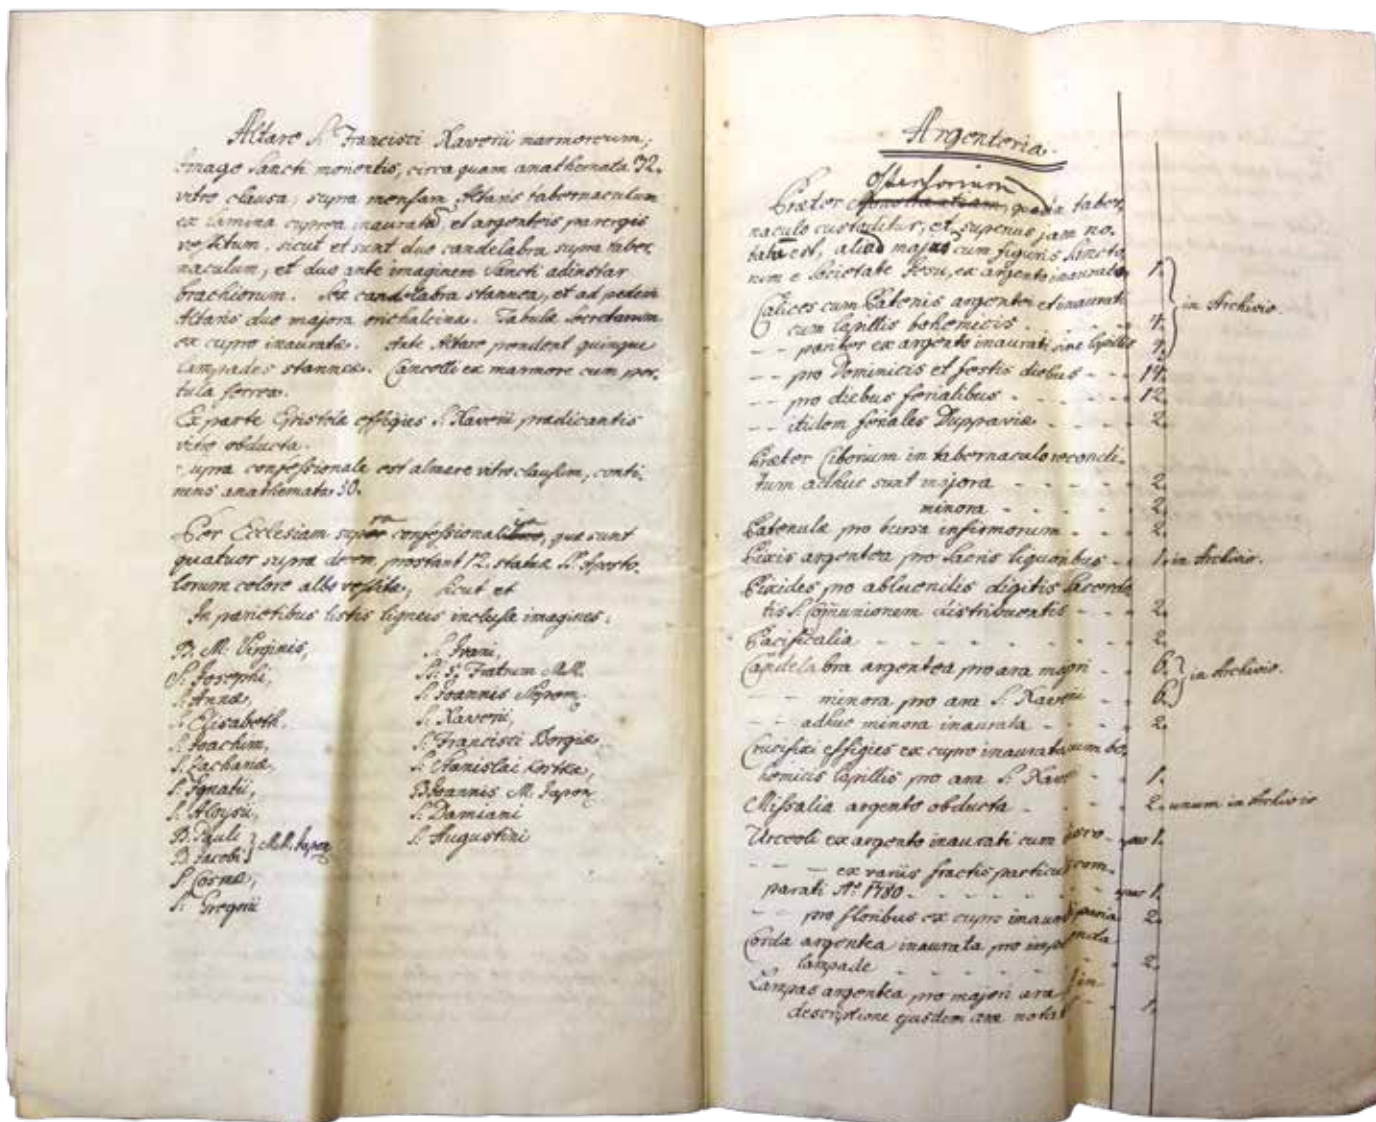 Altare S. Francisci Xaverii marmoreum;
Imago Sancti morientis, circa quam anathemata 32.
vitro clausa; supra mensam Altaris tabernaculum
ex lamina cuprea inaurata et argenteis parergis
vestitum. sicut et sunt duo candelabra supra taber
naculum, et duo ante imaginem Sancti adinstar
brachiorum. Sex candelabra stannea, et ad pedem
Altaris duo majora orichalcina. Tabula Secretarum
ex cupro inaurata. Ante Altare pendent quinque
Lampades stannea. Cancelli ex marmore cum por
tula ferrea.
Ex parte Epistola effigies S. Xaverii prædicantis
vitro obducta.
Supra confessionale est almare vitro clausum, conti
nens anathemata 50.
Per Ecclesiam confessionalia, quæ sunt
quatuor supra prostant 12. statuæ SS. Aposto
lorum colore albo vestitæ, sicut et
In parietibus listis ligneis inclusæ imagines:
B. M. Virginis,
S. Josephi,
S. Annæ,
S. Elisabeth.
S. Joachim,
S. Zachariæ,
S. Ignatii,
S. Aloysii,
B. Pauli
B. Jacobi } M.M. Japon.
S. Cosmæ,
S. Gregorii
S. Ivani,
SS. 5. Fratrum M.M.
S. Joannis Nepom.
S. Xaverii,
S. Francisci Borgiæ
S. Stanislai Kostka,
B. Joannis M. Japon.
S. Damiani
S. Augustini
Argenteria.
Ostensorium
Præter quod in taber
naculo custoditur, et superius jam no
tatum est, aliud majus cum figuris Sancto
rum e Societate Jesu, ex argento inaurato 1. } in Archivio.
Calices cum Patenis argentei et inaurati
cum lapillis bohemicis - - - - -
- - pariter ex argento inaurati sine lapillis
- - pro Dominicis et festis diebus - - - 14.
- - pro diebus ferialibus - - - - - 12.
- - itidem feriales Duppaviæ - - - - 2.
Præter Ciborium in tabernaculo recondi
tum adhuc sunt majora - - - - - 2.
minora - - - - - 2.
Patenula pro bursa infirmorum - - - - 2.
Pixis argentea pro sacris liquoribus - - 1. in Archivio.
Pixides pro abluendis digitis Sacerdo
tis S. Communionem distribuentis - - - 2.
Pacificalia - - - - - - - 2.
Candelabra argentea pro ara majori - - 6. } in Archivio.
- - minora pro ara S. Xaverii - - 6.
- - adhuc minora inaurata - - - 2.
Crucifixi effigies ex cupro inaurata cum bo
hemicis lapillis pro ara S. Xave - - 1.
Missalia argento obducta - - - - 2. unum in Archivio
Urceoli ex argento inaurati cum - par 1.
- - - ex variis fractis particulis com
parati Aº. 1780 - - - - - par 1.
- - pro floribus ex cupro inaurati paria 2.
Corda argentea inaurata pro
lampade - - - - - - 2.
Lampas argentea pro majori ara in
descriptione ejusdem aræ nota - 1.